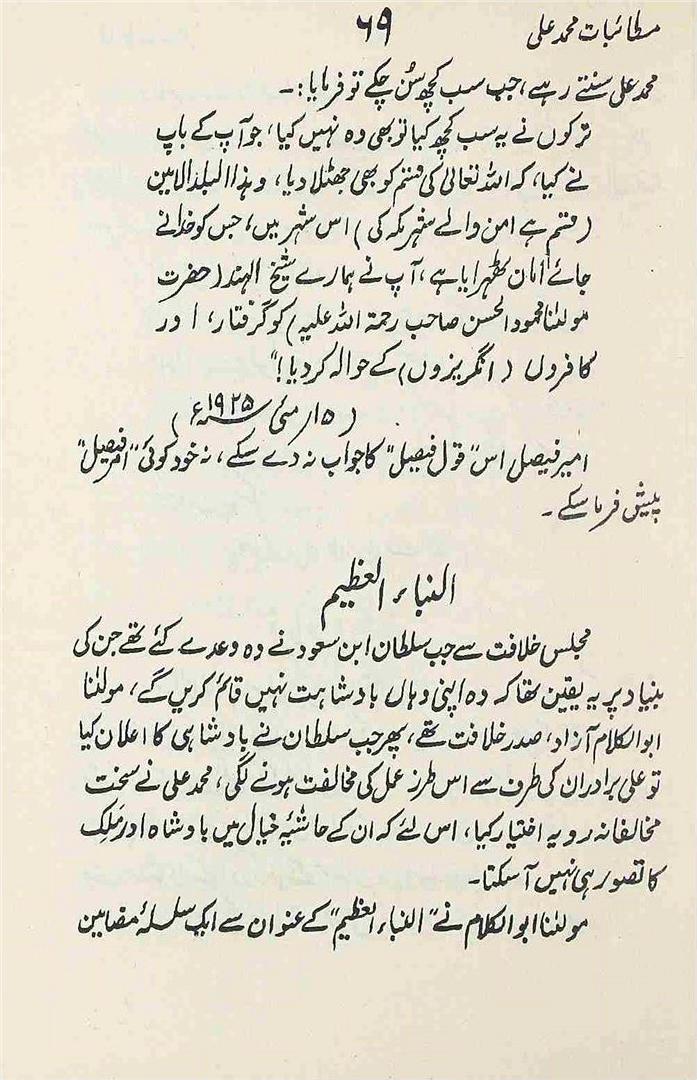 مطائبات محمد علی
۶۹
محمد علی سنتے رہے، جب سب کچھ سُن چکے تو فرمایا:۔
ترکوں نے یہ سب کچھ کیا تو بھی وہ نہیں کیا، جو آپ کے باپ
نے کیا، کہ اللہ تعالیٰ کی قسم کو بھی جھٹلا دیا، وھذا البلد الامین
(قسم ہے امن والے شہر مکہ کی) اس شہر میں، جس کو خدا نے
جائے امان ٹھہرایا ہے، آپ نے ہمارے شیخ الہند (حضرت
مولٰنا محمود الحسن صاحب رحمۃ اللہ علیہ) کو گرفتار، اور
کافروں (انگریزوں) کے حوالہ کر دیا!"
(۱۵ مئی ۱۹۲۵ء)
امیر فیصل اس "قول فیصیل" کا جواب نہ دے سکے، نہ خود کوئی "امر فیصیل"
پیش فرما سکے۔
النباء العظیم
مجلس خلافت سے جب سلطان ابن سعود نے وہ وعدے کئے تھے جن کی
بنیاد پر یہ یقین تھا کہ وہ اپنی وہاں بادشاہت نہیں قائم کریں گے، مولٰنا
ابو الکلام آزاد، صدر خلافت تھے، پھر جب سلطان نے بادشاہی کا اعلان کیا
تو علی برادران کی طرف سے اس طرز عمل کی مخالفت ہونے لگی، محمد علی نے سخت
مخالفانہ رویہ اختیار کیا، اس لئے کہ ان کے حاشیۂ خیال میں بادشاہ اور مَلِک
کا تصور ہی نہیں آسکتا۔
مولٰنا ابو الکلام نے "النباء العظیم" کے عنوان سے ایک سلسلۂ مضامین